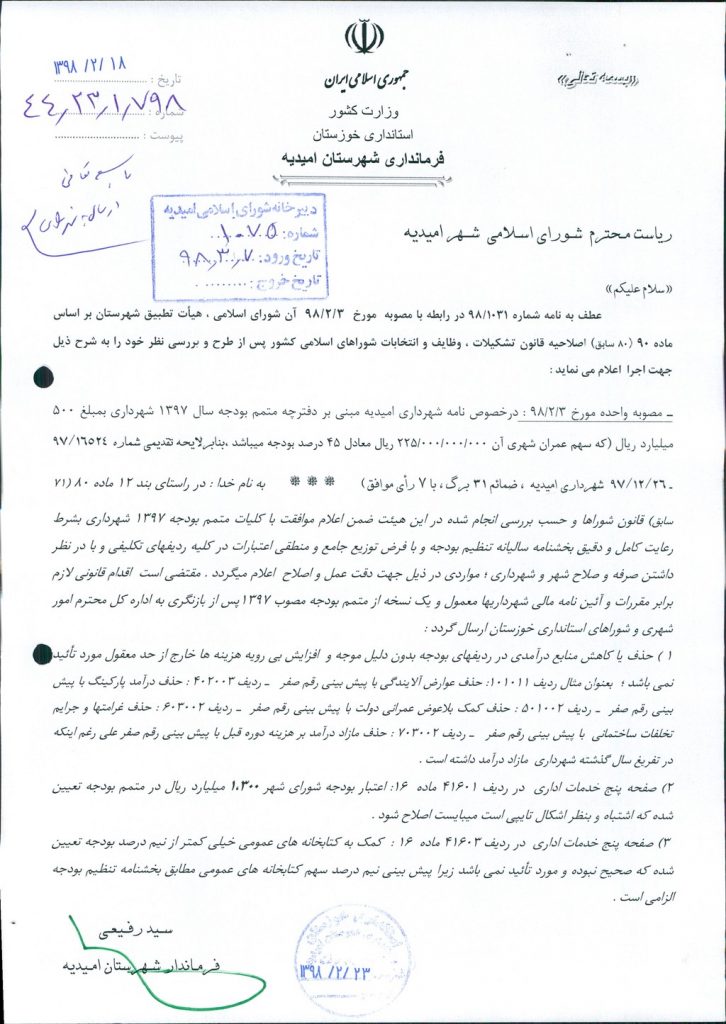 «بسمه تعالی»
جمهوری اسلامی ایران
وزارت کشور
استانداری خوزستان
فرمانداری شهرستان امیدیه
تاریخ : ۱۳۹۸/۲/۱۸
شماره : ۴۴٫۲۳٫۱٫۷۹۸
پیوست :
دبیرخانه شورای اسلامی امیدیه
شماره: ۱۰۷۵
تاریخ ورود: ۹۸٫۳٫۷
تاریخ خروج:
ریاست محترم شورای اسلامی شهر امیدیه
«سلام علیکم»
عطف به نامه شماره ۹۸/۱۰۳۱ در رابطه با مصوبه مورخ ۹۸/۲/۳ آن شورای اسلامی ، هیأت تطبیق شهرستان بر اساس
ماده ۹۰ (۸۰ سابق) اصلاحیه قانون تشکیلات ، وظایف و انتخابات شوراهای اسلامی کشور پس از طرح و بررسی نظر خود را به شرح ذیل
جهت اجرا اعلام می نماید :
ـ مصوبه واحده مورخ ۹۸/۲/۳ : درخصوص نامه شهرداری امیدیه مبنی بر دفترچه متمم بودجه سال ۱۳۹۷ شهرداری بمبلغ ۵۰۰
میلیارد ریال (که سهم عمران شهری آن ۲۲۵/۰۰۰/۰۰۰/۰۰۰ ریال معادل ۴۵ درصد بودجه میباشد ،بنابرلایحه تقدیمی شماره ۹۷/۱۶۵۲۴
ـ ۹۷/۱۲/۲۶ شهرداری امیدیه ، ضمائم ۳۱ برگ ، با ۷ رأی موافق) * * * به نام خدا : در راستای بند ۱۲ ماده ۸۰ (۷۱
سابق) قانون شوراها و حسب بررسی انجام شده در این هیئت ضمن اعلام موافقت با کلیات متمم بودجه ۱۳۹۷ شهرداری بشرط
رعایت کامل و دقیق بخشنامه سالیانه تنظیم بودجه و با فرض توزیع جامع و منطقی اعتبارات در کلیه ردیفهای تکلیفی و با در نظر
داشتن صرفه و صلاح شهر و شهرداری ؛ مواردی در ذیل جهت دقت عمل و اصلاح اعلام میگردد . مقتضی است اقدام قانونی لازم
برابر مقررات و آئین نامه مالی شهرداریها معمول و یک نسخه از متمم بودجه مصوب ۱۳۹۷ پس از بازنگری به اداره کل محترم امور
شهری و شوراهای استانداری خوزستان ارسال گردد :
۱ ) حذف یا کاهش منابع درآمدی در ردیفهای بودجه بدون دلیل موجه و افزایش بی رویه هزینه ها خارج از حد معقول مورد تأئید
نمی باشد ؛ بعنوان مثال ردیف ۱۰۱۰۱۱: حذف عوارض آلایندگی با پیش بینی رقم صفر ـ ردیف ۴۰۲۰۰۳ : حذف درآمد پارکینگ با پیش
بینی رقم صفر ـ ردیف ۵۰۱۰۰۲ : حذف کمک بلاعوض عمرانی دولت با پیش بینی رقم صفر ـ ردیف ۶۰۳۰۰۲ : حذف غرامتها و جرایم
تخلفات ساختمانی با پیش بینی رقم صفر ـ ردیف ۷۰۳۰۰۲ : حذف مازاد درآمد بر هزینه دوره قبل با پیش بینی رقم صفر علی رغم اینکه
در تفریغ سال گذشته شهرداری مازاد درآمد داشته است .
۲) صفحه پنج خدمات اداری در ردیف ۴۱۶۰۱ ماده ۱۶: اعتبار بودجه شورای شهر ۱.۳۰۰ میلیارد ریال در متمم بودجه تعیین
شده که اشتباه و بنظر اشکال تایپی است میبایست اصلاح شود .
۳) صفحه پنج خدمات اداری در ردیف ۴۱۶۰۳ ماده ۱۶ : کمک به کتابخانه های عمومی خیلی کمتر از نیم درصد بودجه تعیین
شده که صحیح نبوده و مورد تأئید نمی باشد زیرا پیش بینی نیم درصد سهم کتابخانه های عمومی مطابق بخشنامه تنظیم بودجه
الزامی است .
سید رفیعی
فرماندار شهرستان امیدیه
۱۳۹۸/۲/۲۳